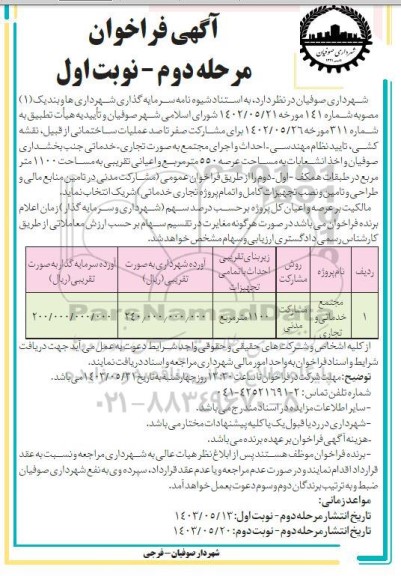 شهرداری صوفیان
آگهی فراخوان
مرحله دوم - نوبت اول
شهرداری صوفیان در نظر دارد، به استناد شیوه نامه سرمایه گذاری شهرداری ها و بند یک (۱)
مصوبه شماره ۱۴۱ مورخه ۱۴۰۲/۰۵/۲۱ شورای اسلامی شهر صوفیان و تأییدیه هیأت تطبیق به
شماره ۳۱۱ مورخه ۱۴۰۲/۰۵/۲۶ برای مشارکت صفر تا صد عملیات ساختمانی از قبیل، نقشه
کشی، تایید نظام مهندسی، احداث و اجرای مجتمع به صورت تجاری، خدماتی جنب بخشداری
صوفیان و اخذ انشعابات به مساحت عرصه ۵۵۰ مترمربع و اعیانی تقریبی به مساحت ۱۱۰۰ متر
مربع در طبقات همکف - اول - دوم را از طریق فراخوان عمومی (مشارکت مدنی در تامین منابع مالی و
طراحی و تامین و نصب تجهیزات کامل و اتمام پروژه تجاری خدماتی) شریک انتخاب نماید.
مالکیت بر عرصه و اعیان کل پروژه بر حسب درصد سهم (شهرداری و سرمایه گذار) زمان اعلام
برنده فراخوان می باشد در صورت هرگونه مغایرت در تقسیم سهام بر حسب ارزش معاملاتی از طریق
کارشناس رسمی دادگستری ارزیابی و سهام مشخص خواهد شد.
ردیف | نام پروژه | روش مشارکت | زیربنای تقریبی احداث با تمامی تجهیزات | آورده شهرداری به صورت تقریبی (ریال) | آورده سرمایه گذار به صورت تقریبی (ریال)
۱ | مجتمع خدماتی و تجاری | مشارکت مدنی | ۱۱۰۰ مترمربع | ۲۴۰,۰۰۰,۰۰۰,۰۰۰ | ۲۰۰/۰۰۰/۰۰۰/۰۰۰
از کلیه اشخاص و شرکت های حقیقی و حقوقی واجد شرایط دعوت به عمل می آید جهت دریافت
شرایط و اسناد فراخوان به واحد امور مالی شهرداری مراجعه و اسناد دریافت نمایند.
توضیح: مهلت شرکت در فراخوان تا ساعت ۱۳:۳۰ روز چهارشنبه به تاریخ ۱۴۰۳/۰۵/۳۱ می باشد.
شماره تلفن تماس: ۲-۴۲۵۲۱۶۹۱-۰۴۱
-سایر اطلاعات مزایده در اسناد مندرج می باشد.
-شهرداری در رد یا قبول یک یا کلیه پیشنهادات مختار می باشد.
-هزینه آگهی فراخوان بر عهده برنده می باشد.
-برنده فراخوان موظف هستند پس از ابلاغ نظر هیات عالی به شهرداری مراجعه و نسبت به عقد
قرارداد اقدام نمایند و در صورت عدم مراجعه و یا عدم عقد قرارداد، سپرده وی به نفع شهرداری صوفیان
ضبط و به ترتیب برندگان دوم و سوم دعوت بعمل خواهد آمد.
مواعد زمانی:
تاریخ انتشار مرحله دوم - نوبت اول: ۱۴۰۳/۰۵/۱۳
تاریخ انتشار مرحله دوم - نوبت دوم: ۱۴۰۳/۰۵/۲۰
شهردار صوفیان - فرجی